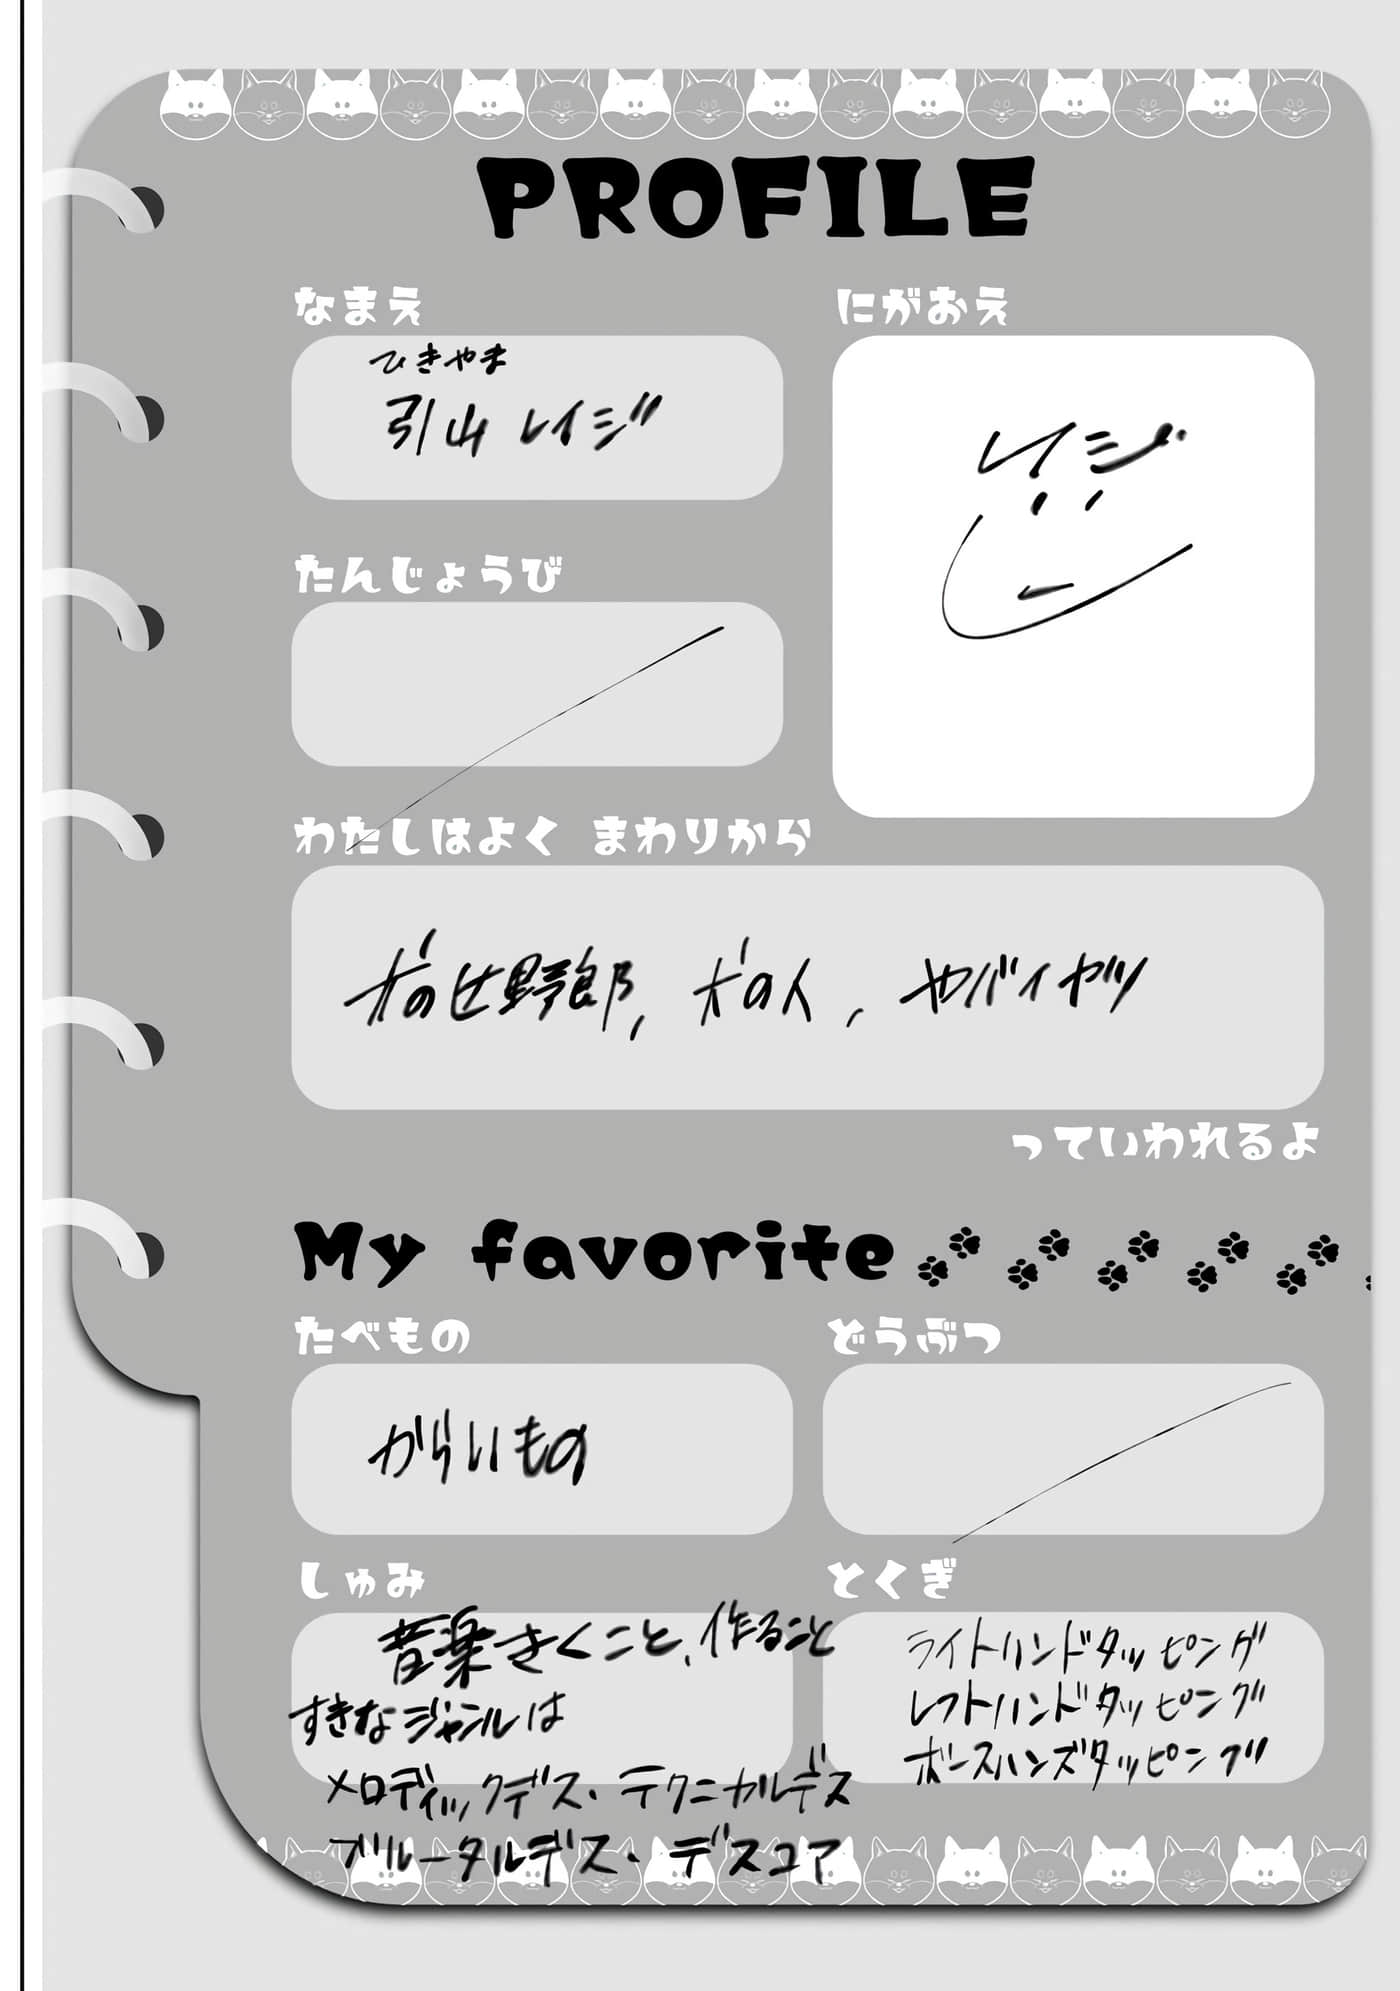 PROFILE
なまえ
ひきやま
引山 レイジ
にがおえ
レイジ
たんじょうび
わたしはよく まわりから
犬のヒ野郎, 犬の人, ヤバイヤツ
っていわれるよ
My favorite
たべもの
からいもの
どうぶつ
しゅみ
音楽きくこと、作ること
すきなジャンルは
メロディックデス・テクニカルデス
ブルータルデス・デスコア
とくぎ
ライトハンドタッピング
レフトハンドタッピング
ボースハンズタッピング